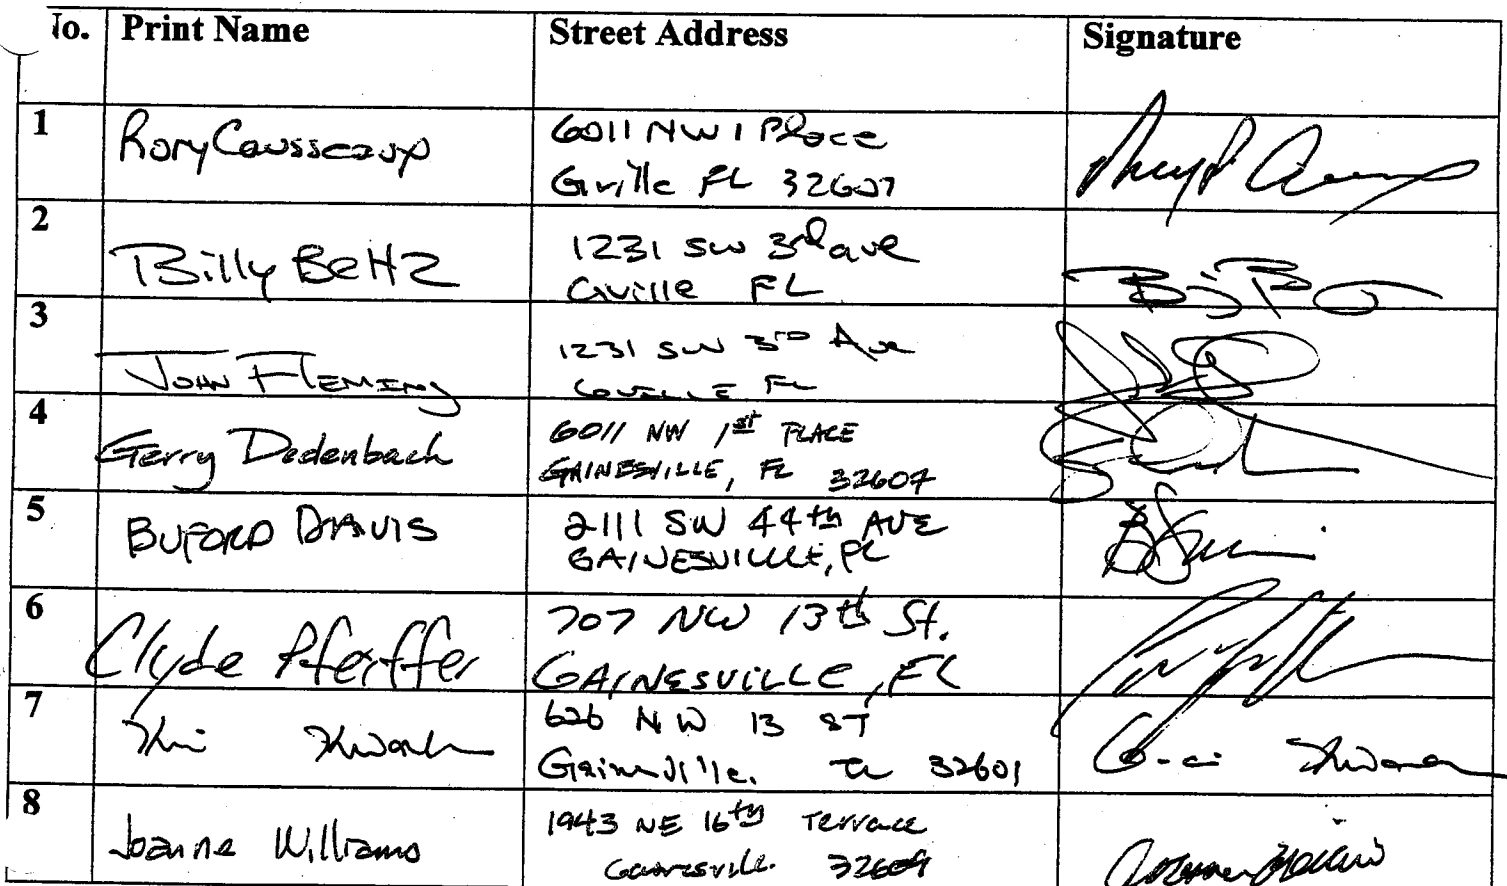 No. Print Name Street Address Signature
1 Rory Causseaux 6011 NW 1 Place
Gville FL 32607
2 Billy Beltz 1231 SW 3rd ave
Gville FL
3 John Fleming 1231 SW 3RD Ave
FL
4 Gerry Dedenbach 6011 NW 1st PLACE
GAINESVILLE, FL 32607
5 BUFORD DAVIS 2111 SW 44th AVE
GAINESVILLE, FL
6 Clyde Pfeiffer 707 NW 13th St.
GAINESVILLE, FL
7 626 NW 13 ST
Gainesville. 32601
8 Joanne Williams 1943 NE 16th Terrace
Gainesville.